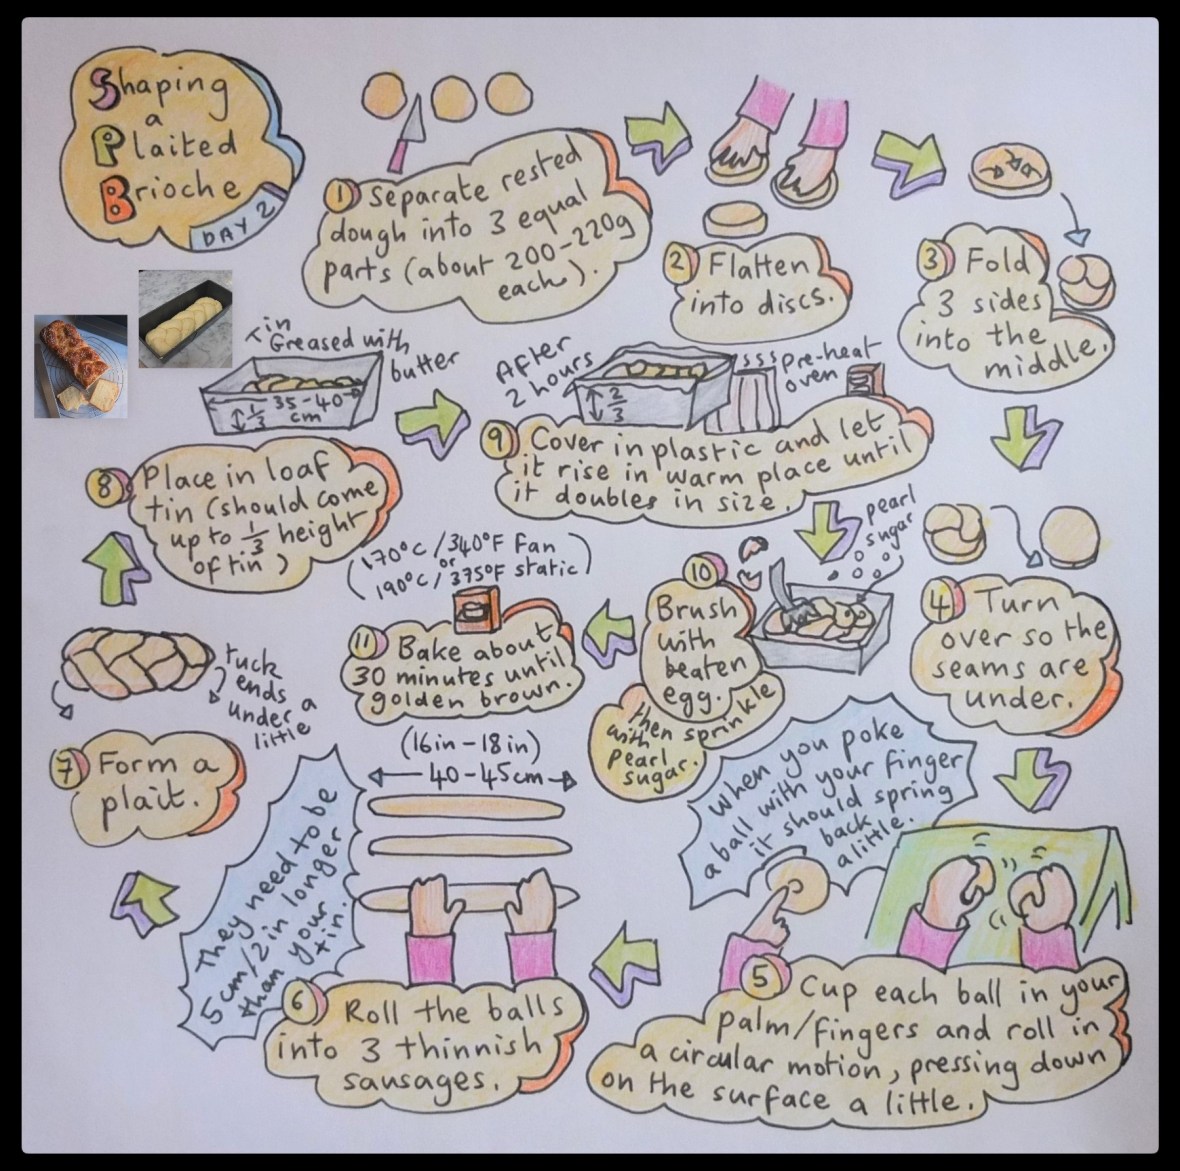 Shaping
a
Plaited
Brioche
DAY 2
1 Separate rested
dough into 3 equal
parts (about 200-220g
each).
2 Flatten
into discs.
3 Fold
3 sides
into the
middle.
4 Turn
over so the
seams are
under.
When you poke
a ball with your finger
it should spring
back
a little.
5 Cup each ball in your
palm/fingers and roll in
a circular motion, pressing down
on the surface a little.
(16in-18in)
40-45cm
They need to be
5cm/2in longer
than your
tin.
6 Roll the balls
into 3 thinnish
sausages.
tuck
ends
under a
little
7 Form a
plait.
tin
Greased with
butter
35-40
cm
1/3
8 Place in loaf
tin (should come
up to 1/3 height
of tin)
After
2 hours
2/3
sss pre-heat
oven
9 Cover in plastic and let
it rise in warm place until
it doubles in size.
pearl
sugar
10
Brush
with
beaten
egg.
then sprinkle
with
pearl
sugar.
(170°C/340°F Fan
or
190°C/375°F static)
11 Bake about
30 minutes until
golden brown.